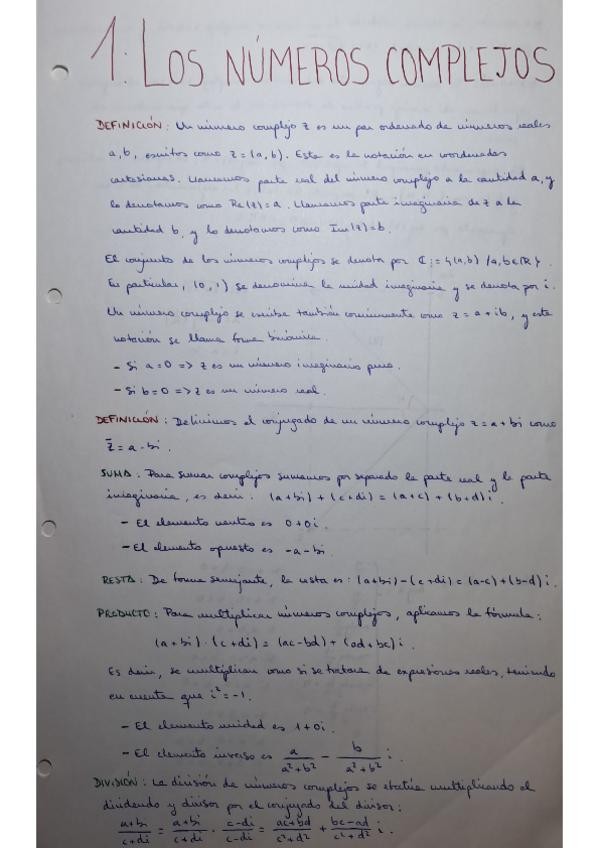 1. LOS NÚMEROS COMPLEJOS
DEFINICIÓN: Un número complejo z es un par ordenado de números reales
a, b, escritos como z = (a, b). Esta es la notación en coordenadas
cartesianas. Llamamos parte real del número complejo a la cantidad a, y
lo denotamos como Re(z) = a. Llamamos parte imaginaria de z a la
cantidad b, y lo denotamos como Im(z) = b.
El conjunto de los números complejos se denota por ℂ := {(a, b) / a, b ∈ ℝ}.
En particular, (0, 1) se denomina la unidad imaginaria y se denota por i.
Un número complejo se escribe también comúnmente como z = a + ib, y esta
notación se llama forma binómica.
- Si a = 0 => z es un número imaginario puro.
- Si b = 0 => z es un número real.
DEFINICIÓN: Definimos el conjugado de un número complejo z = a + bi como
z̄ = a - bi.
SUMA: Para sumar complejos sumamos por separado la parte real y la parte
imaginaria, es decir: (a+bi) + (c+di) = (a+c) + (b+d)i.
- El elemento neutro es 0+0i.
- El elemento opuesto es -a-bi
RESTA: De forma semejante, la resta es: (a+bi) - (c+di) = (a-c) + (b-d)i.
PRODUCTO: Para multiplicar números complejos, aplicamos la fórmula:
(a+bi) · (c+di) = (ac-bd) + (ad+bc)i.
Es decir, se multiplican como si se tratara de expresiones reales, teniendo
en cuenta que i² = -1.
- El elemento unidad es 1+0i.
- El elemento inverso es a/(a²+b²) - b/(a²+b²) i.
DIVISIÓN: La división de números complejos se efectúa multiplicando el
dividendo y divisor por el conjugado del divisor:
(a+bi)/(c+di) = (a+bi)/(c+di) · (c-di)/(c-di) = (ac+bd)/(c²+d²) + (bc-ad)/(c²+d²) i.